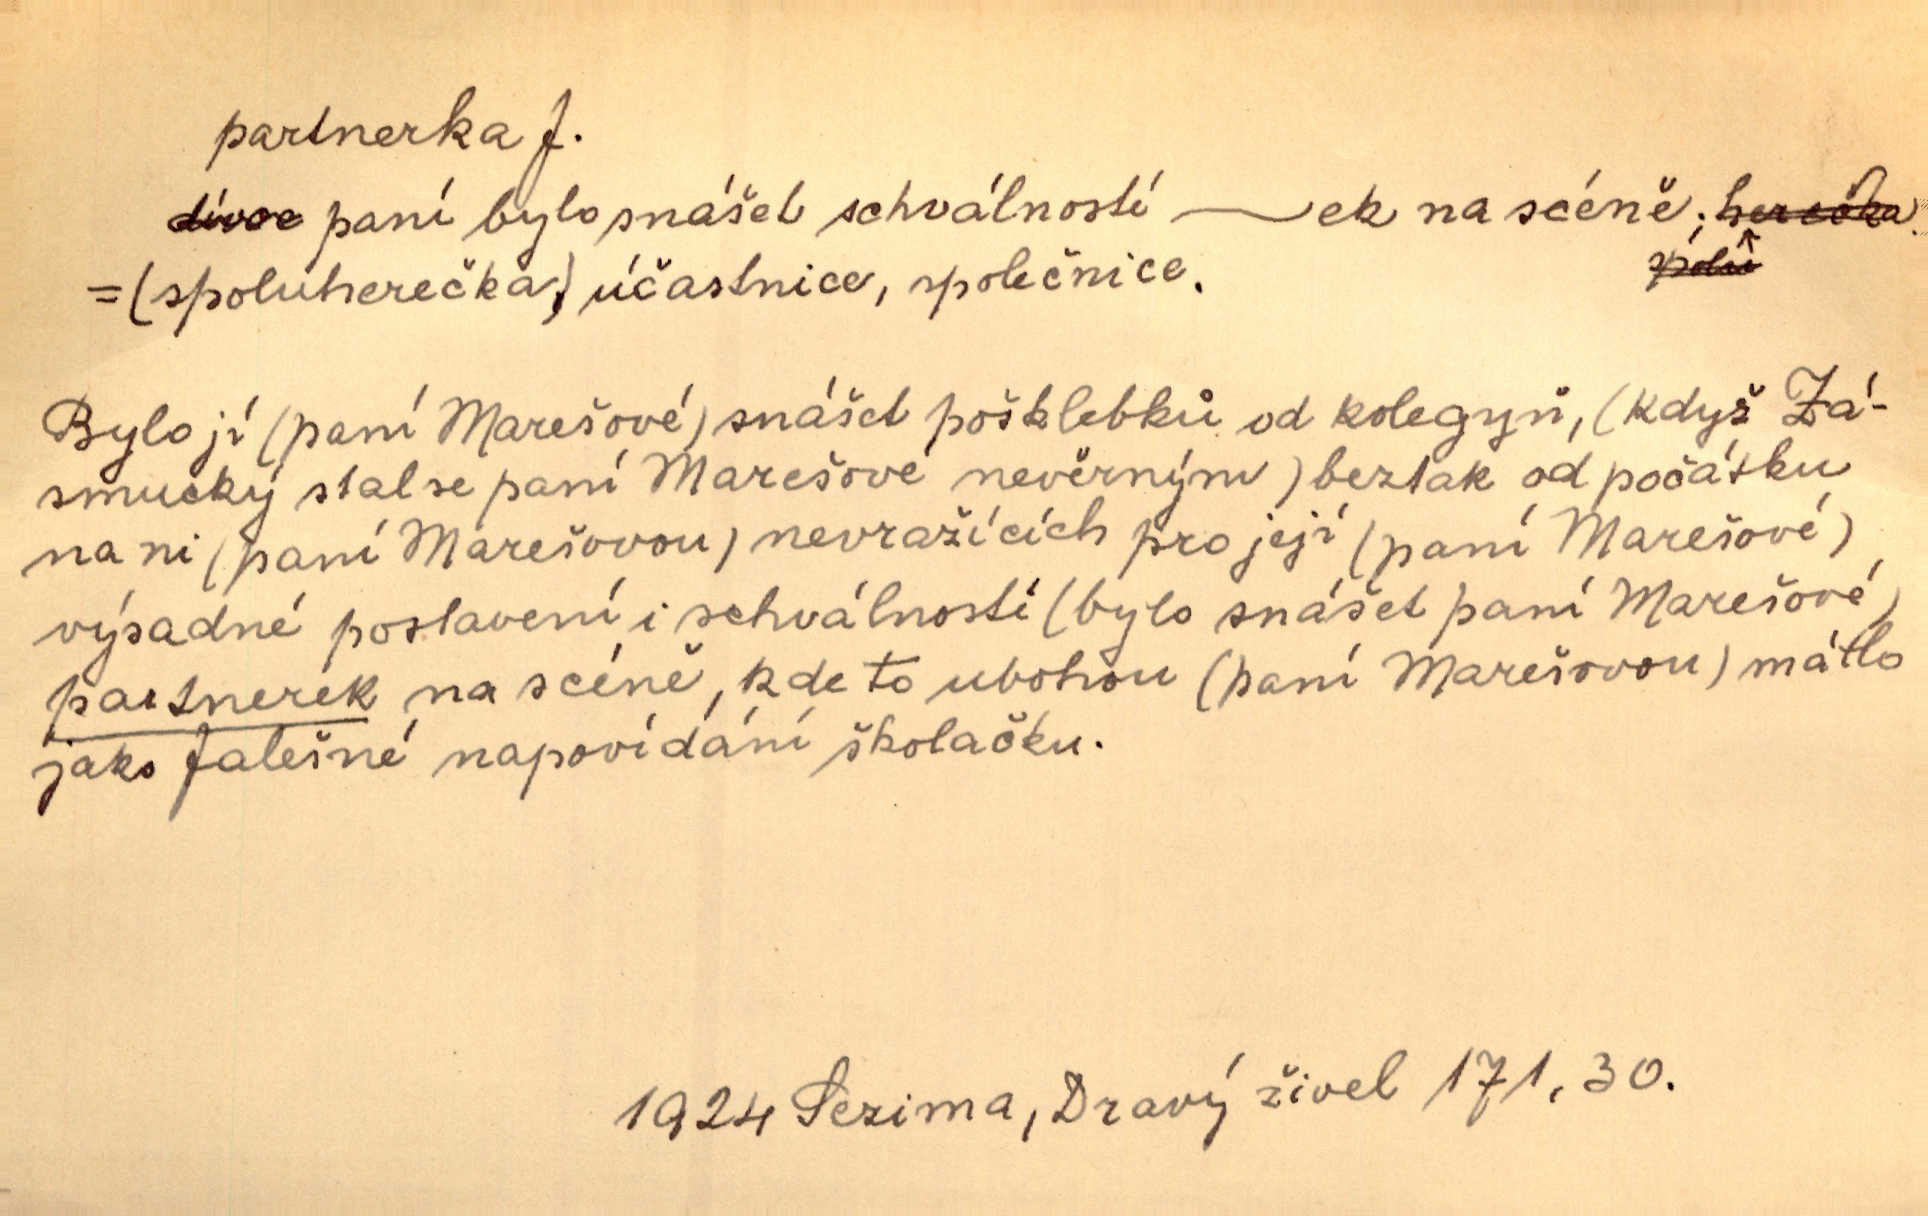 partnerka f.
paní bylo snášet schválností —ek na scéně; herečka
spolu
= (spoluherečka,) účastnice, společnice.
Bylo jí (paní Marešové) snášet pošklebků od kolegyň, (když Zá-
smucký stal se paní Marešové nevěrným) beztak od počátku
na ni (paní Marešovou) nevražících pro její (paní Marešové)
výsadné postavení i schválností (bylo snášet paní Marešové)
partnerek na scéně, kde to ubohou (paní Marešovou) mátlo
jako falešné napovídání školačku.
1924 Sezima, Dravý živel 171, 30.